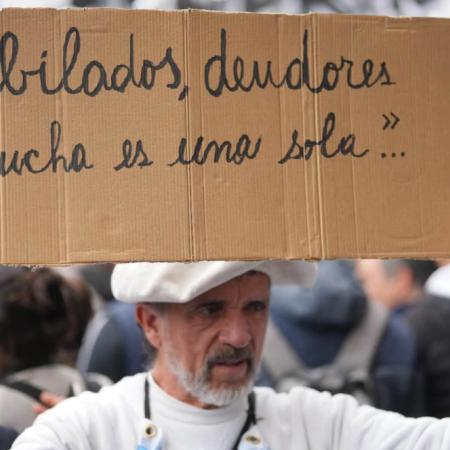 bilados, deudores
ucha es una sola"...